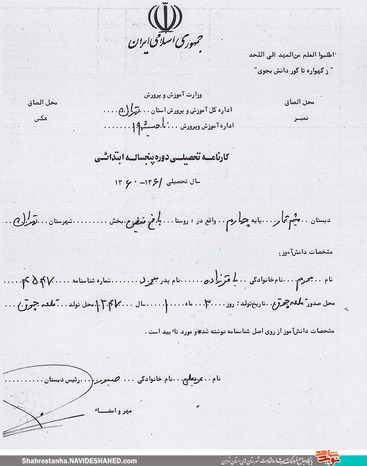 جمهوری اسلامی ایران
اطلبوا العلم من المهد الی اللحد
" ز گهواره تا گور دانش بجوی "
وزارت آموزش و پرورش
اداره کل آموزش و پرورش استان ... تهران
اداره آموزش و پرورش ... ناحیه ۱۹
محل الصاق
تمبر
محل الصاق
عکس
کارنامه تحصیلی دوره پنجساله ابتدائی
سال تحصیلی ۱۳۶۱-۱۳۶۰
دبستان میثم تمار پایه چهارم واقع در : روستا باغ فیض بخش شهرستان تهران
مشخصات دانش‌آموز:
نام نام خانوادگی باقرزاده نام پدر شماره شناسنامه ۴۵۴۷
محل صدور قلعه تاریخ تولد : روز ۲۰ ماه ۱۰ سال ۱۳۴۷ محل تولد قلعه
مشخصات دانش‌آموز از روی اصل شناسنامه نوشته شده و مورد تایید است .
نام نام خانوادگی رئیس دبستان
مهر و امضاء
Shahrestanha.NAVIDESHAHED.com